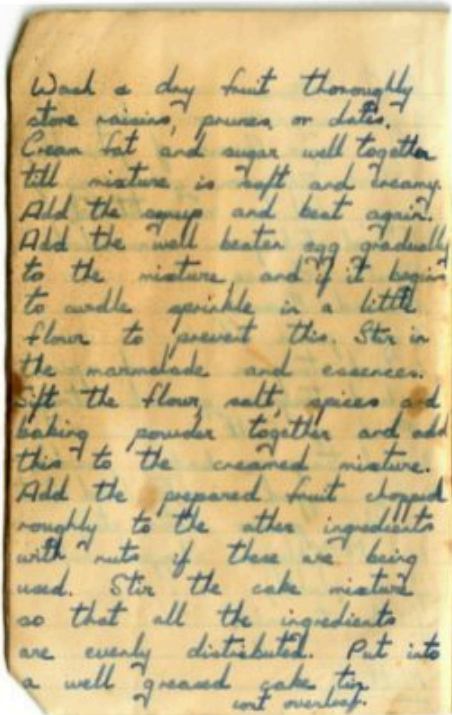 Wash & dry fruit thoroughly
stone raisins, prunes or dates.
Cream fat and sugar well together
till mixture is soft and creamy.
Add the syrup and beat again.
Add the well beaten egg gradually
to the mixture, and if it begins
to curdle sprinkle in a little
flour to prevent this. Stir in
the marmelade and essences.
Sift the flour, salt, spices and
baking powder together and add
this to the creamed mixture.
Add the prepared fruit chopped
roughly to the other ingredients
with nuts if these are being
used. Stir the cake mixture
so that all the ingredients
are evenly distributed. Put into
a well greased cake tin
cont overleaf.